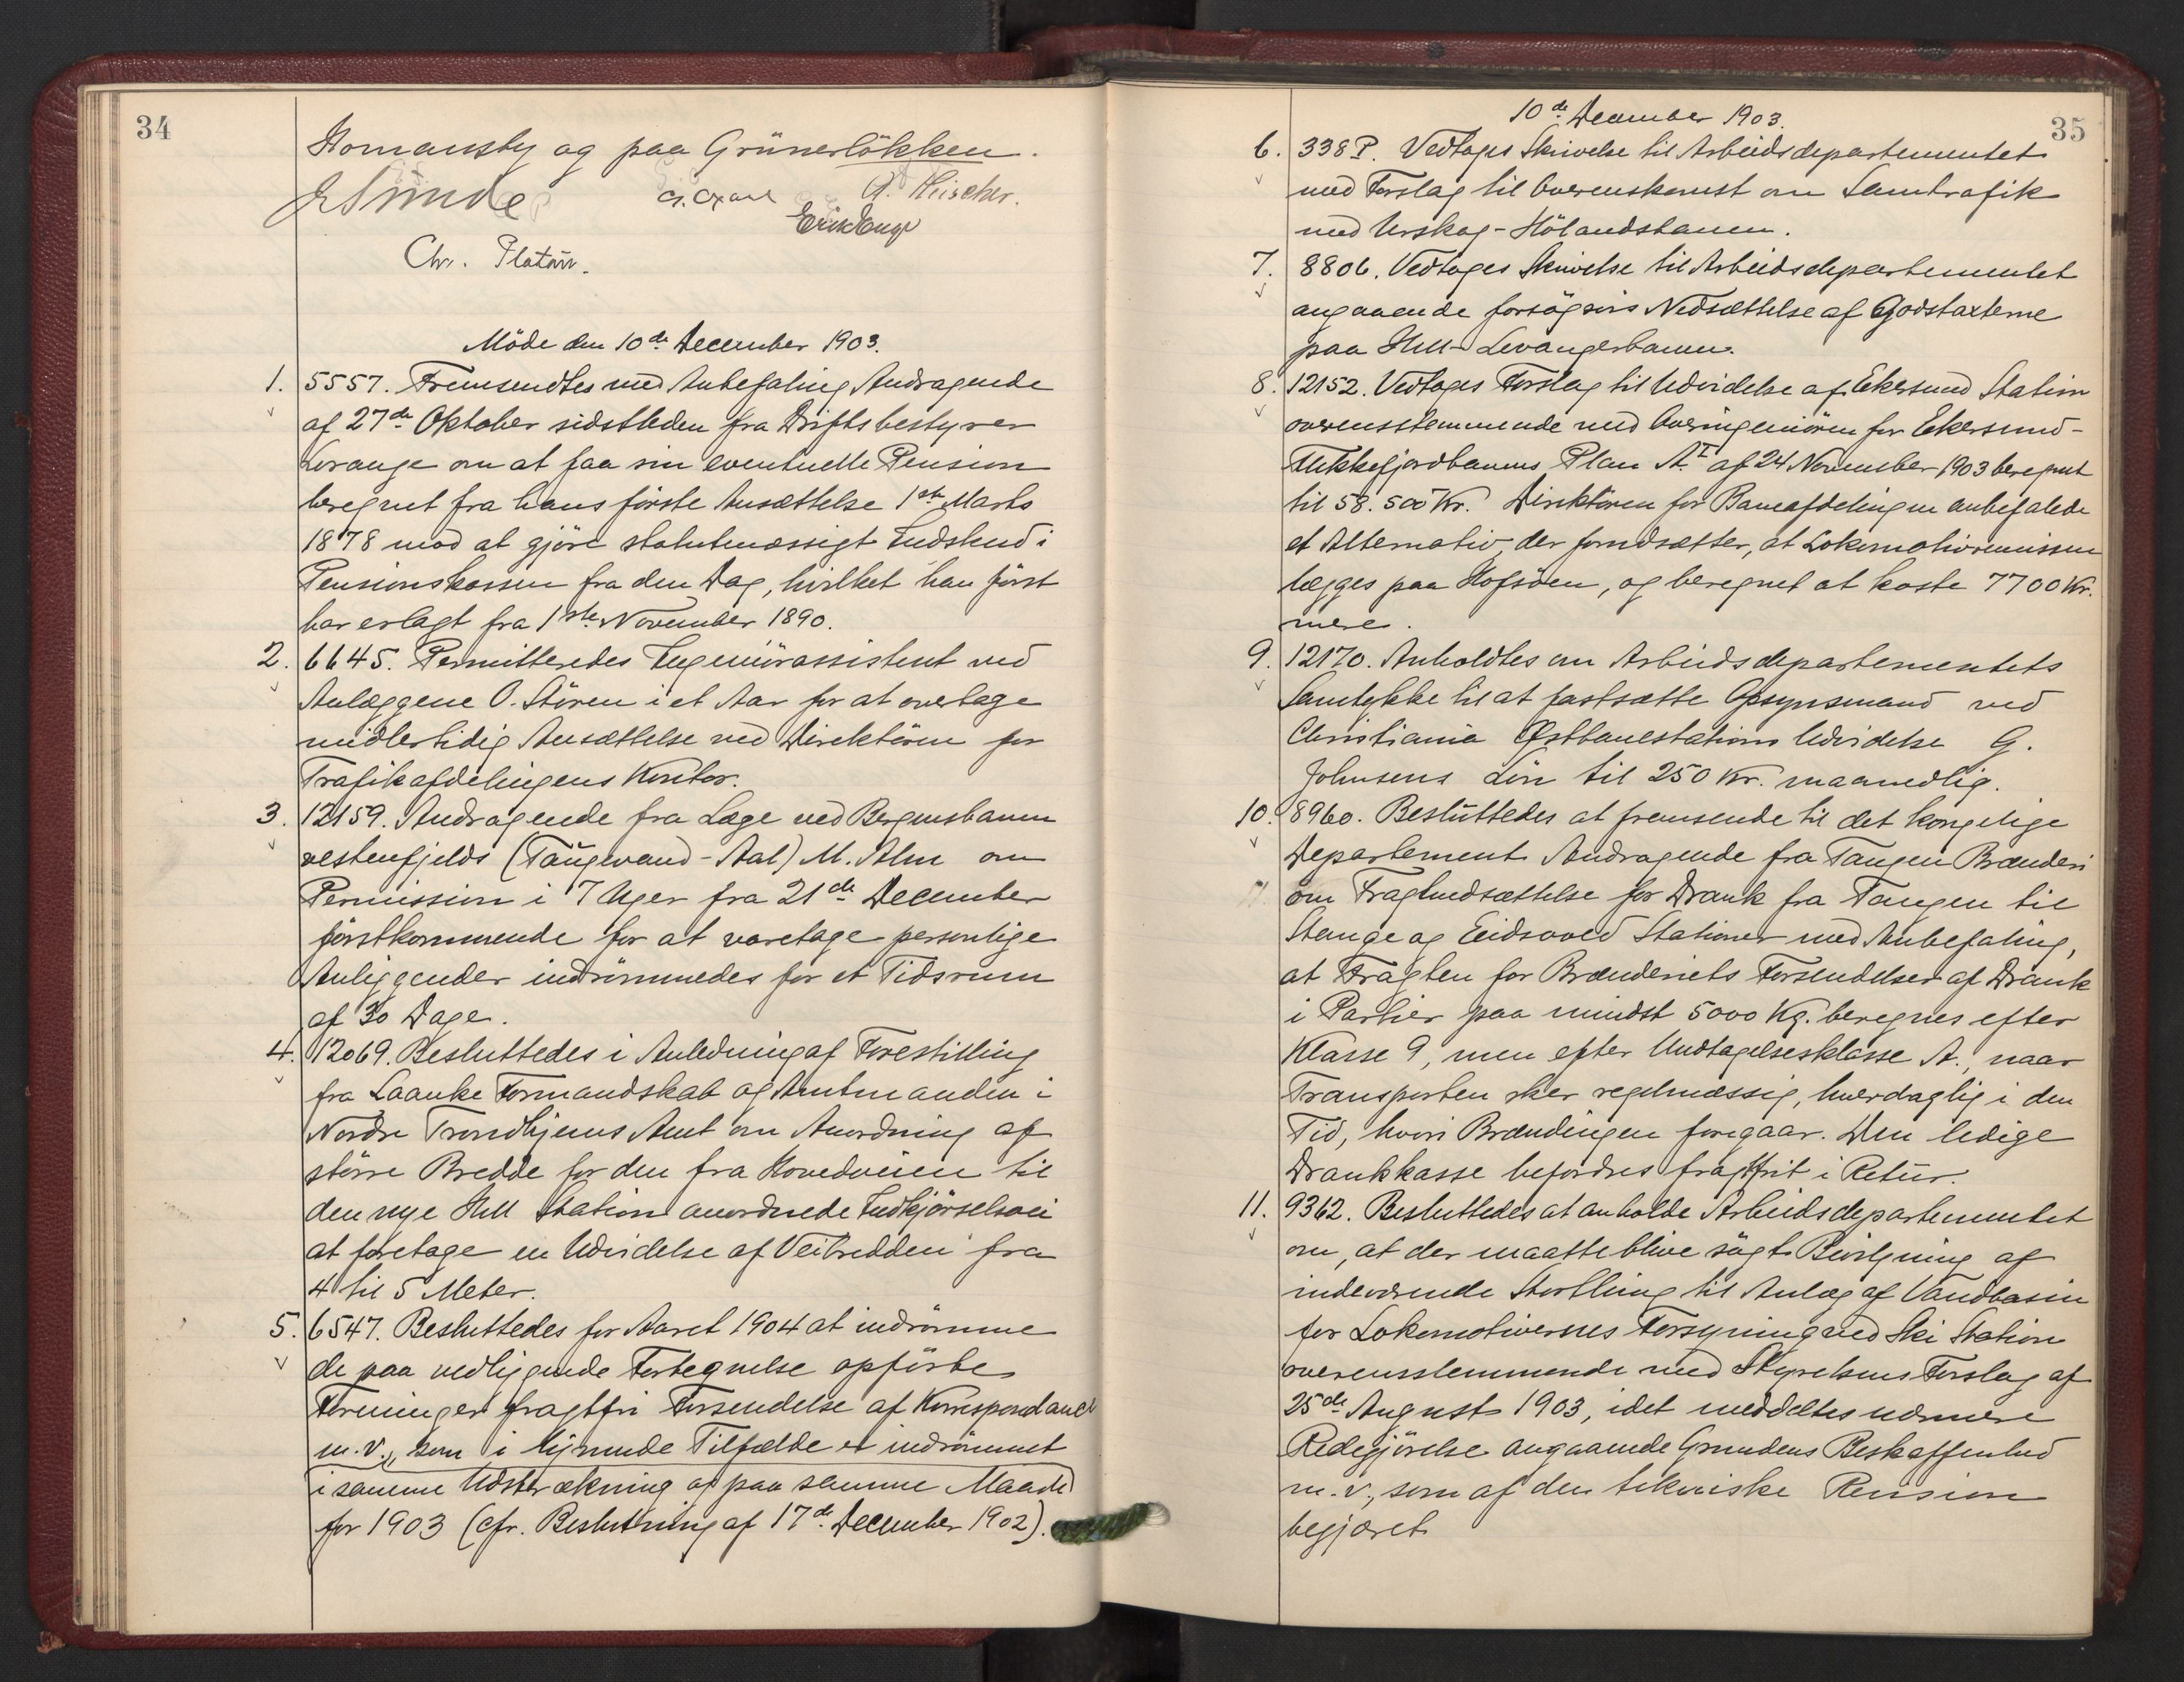 34
Homansby og paa Grünerlökken.
E Sunde
Chr. Platou.
Möde den 10de December 1903.
1. 5557. Fremsendtes med Anbefaling Andragende
af 27de Oktober sidstleden fra Driftsbestyrer
Lorange om at faa sin eventuelle Pension
beregnet fra hans förste Ansættelse 1ste Marts
1878 mod at gjöre statutmæssigt Indskud i
Pensionskassen fra den Dag, hvilket han först
har erlagt fra 1ste November 1890.
2. 6645. Permitteredes Ingeniörassistent ved
Anlæggene O. Stören i et Aar for at overtage
midlertidig Ansættelse ved Direktören for
Trafikafdelingens Kontor.
3. 12159. Andragende fra Læge ved Bergensbanen
vestenfjelds (Taugevand-Aal) M. Alm om
Permission i 7 Uger fra 21de December
förstkommende for at varetage personlige
Anliggender indrömmedes for et Tidsrum
af 30 Dage.
4. 12069. Besluttedes i Anledning af Forestilling
fra Laanke Formandskab og Amtmanden i
Nordre Trondhjems Amt om Anordning af
större Bredde for den fra Hovedveien til
den nye Hell Station anordnede Indkjörselsvei
at foretage en Udvidelse af Veibredden fra
4 til 5 Meter.
5. 6547. Besluttedes for Aaret 1904 at indrömme
de paa vedliggende Fortegnelse opförte
Foreninger fragtfri Forsendelse af Korrespondance
m.v., som i lignende Tilfælde er indrömmet
i samme Udstrækning og paa samme Maade
for 1903 (cfr. Beslutning af 17de December 1902).
10de December 1903.
35
6. 338 P. Vedtoges Skrivelse til Arbeidsdepartementet
med Forslag til Overenskomst om Samtrafik
med Urskog-Hölandsbanen.
7. 8806. Vedtoges Skrivelse til Arbeidsdepartementet
angaaende forsögsvis Nedsættelse af Godstaxterne
paa Hell-Levangerbanen.
8. 12152. Vedtoges Forslag til Udvidelse af Ekersund Station
overensstemmende med Overingeniören for Ekersund-
Flekkefjordbanens Plan A.I af 24 November 1903 beregnet
til 58.500 Kr. Direktören for Baneafdelingen anbefalede
et Alternativ, der forudsætter, at Lokomotivremissen
lægges paa Hofsöen, og beregnet at koste 7700 Kr.
mere.
9. 12170. Anholdtes om Arbeidsdepartementets
Samtykke til at fastsætte Opsynsmand ved
Christiania Østbanestations Udvidelse G.
Johnsens Lön til 250 Kr. maanedlig.
10. 8960. Besluttedes at fremsende til det kongelige
Departement Andragende fra Tangen Brænderi
om Fragtnedsættelse for Drank fra Tangen til
Stange og Eidsvold Stationer med Anbefaling,
at Fragten for Brænderiets Forsendelser af Drank
i Partier paa mindst 5000 Kg. beregnes efter
Klasse 9, men efter Undtagelsesklasse A., naar
Transporten sker regelmæssig, hverdaglig i den
Tid, hvori Brændingen foregaar. Den ledige
Drankkasse befordres fragtfrit i Retur.
11. 9362. Besluttedes at anholde Arbeidsdepartementet
om, at der maatte blive sögt Bevilgning af
indeværende Storthing til Anlæg af Vandbasin
for Lokomotivernes Forsyning ved Ski Station
overensstemmende med Styrelsens Forslag af
25de August 1903, idet meddeltes nærmere
Redegjörelse angaaende Grundens Beskaffenhed
m.v., som af den tekniske Revision
begjæret